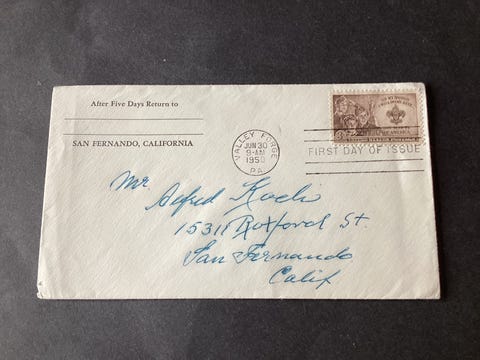 After Five Days Return to
SAN FERNANDO, CALIFORNIA
VALLEY FORGE
JUN 30
9-AM
1950
PA.
FIRST DAY OF ISSUE
Mr
Alfred
15311 St.
San Fernando
Calif